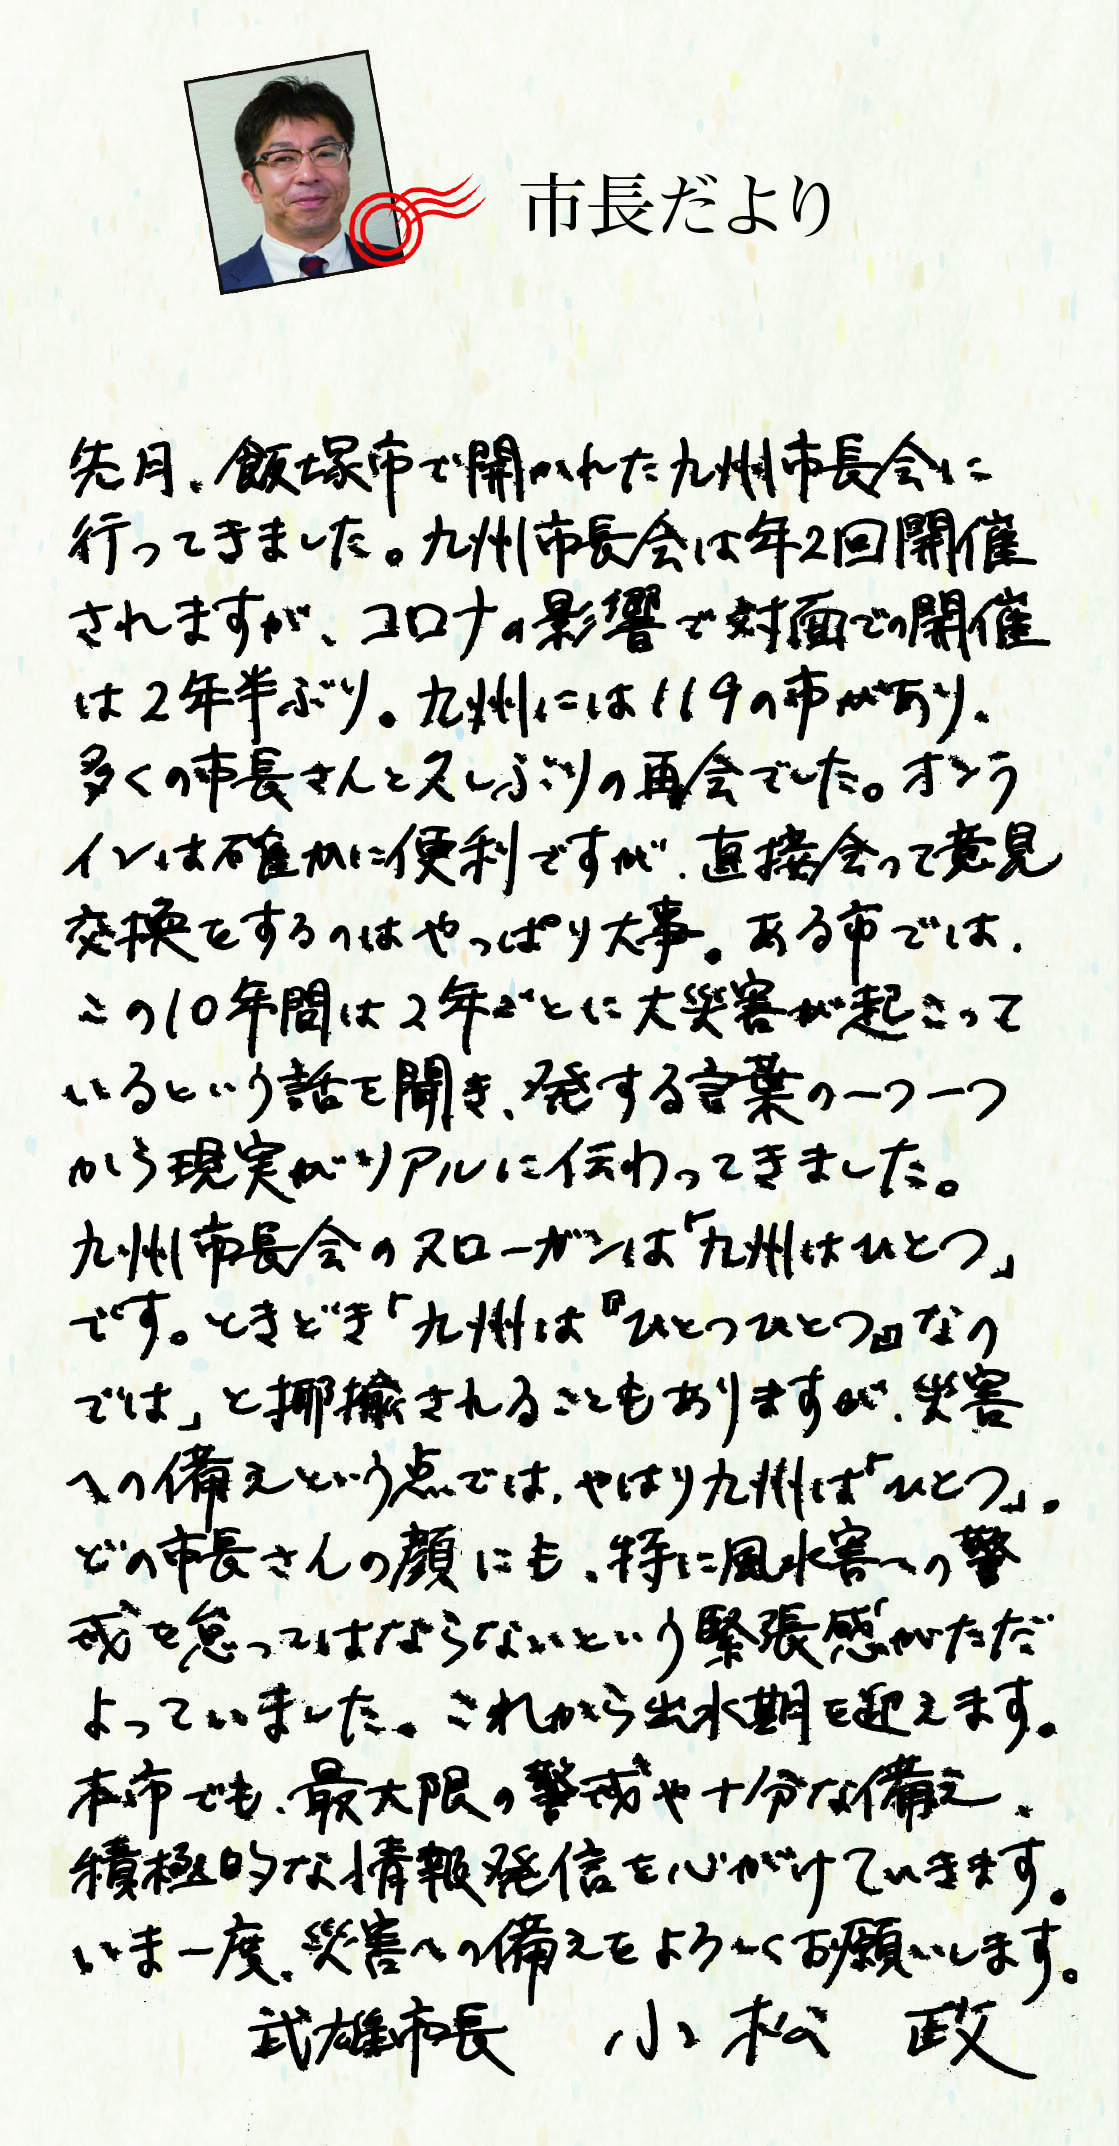 市長だより
先月、飯塚市で開かれた九州市長会に
行ってきました。九州市長会は年2回開催
されますが、コロナの影響で対面での開催
は2年半ぶり。九州には119の市があり、
多くの市長さんと久しぶりの再会でした。オンラ
インは確かに便利ですが、直接会って意見
交換をするのはやっぱり大事。ある市では、
この10年間は2年ごとに大災害が起こって
いるという話を聞き、発する言葉の一つ一つ
から現実がリアルに伝わってきました。
九州市長会のスローガンは「九州はひとつ」
です。ときどき「九州は『ひとつひとつ』なの
では」と揶揄されることもありますが、災害
への備えという点では、やはり九州は「ひとつ」。
どの市長さんの顔にも、特に風水害への警
戒を怠ってはならないという緊張感がただ
よっていました。これから出水期を迎えます。
本市でも、最大限の警戒や十分な備え、
積極的な情報発信を心がけていきます。
いま一度、災害への備えをよろしくお願いします。
武雄市長 小松 政